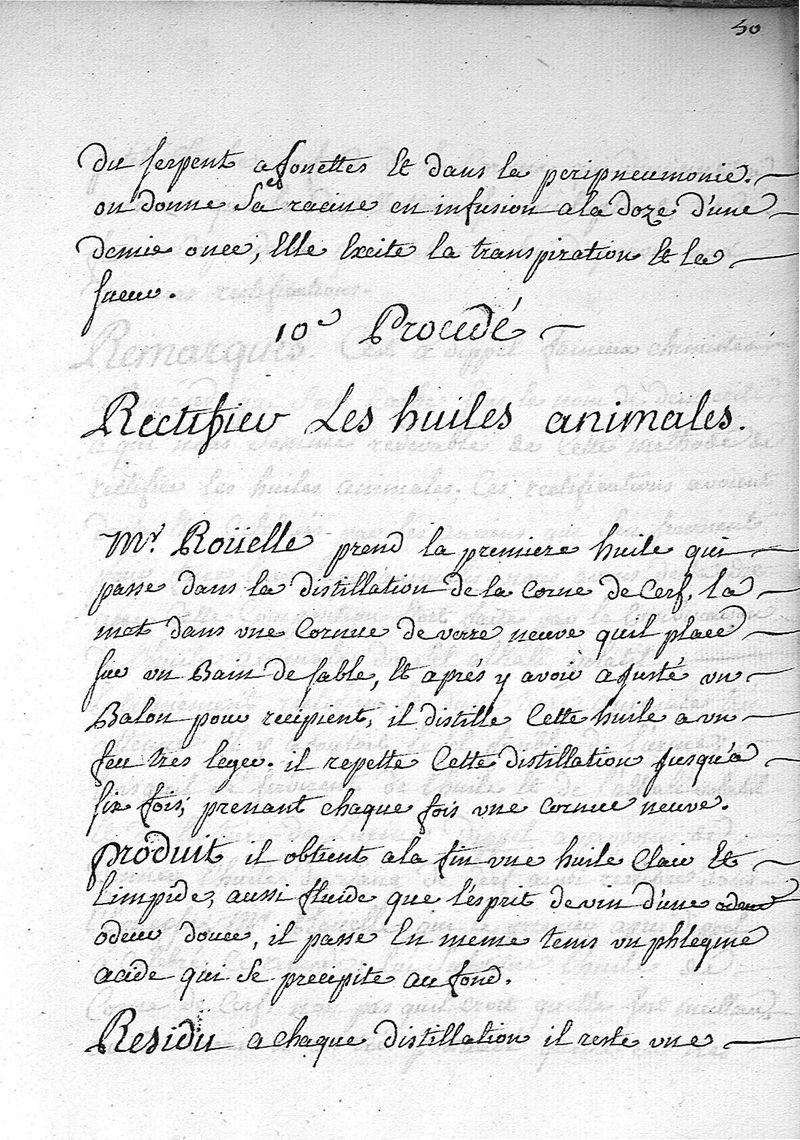 50
du serpent a sonettes et dans la peripneumonie.
on donne sa racine en infusion a la doze d'une
demie once, Elle Excite la transpiration Et la
sueur.
10e Procedé
Rectifier Les huiles animales.
Mr. Roüelle prend la premiere huile qui
passe dans la distillation de la Corne de Cerf, la
met dans vne Cornue de verre neuve quil place
sur vn Bain de sable, Et aprés y avoir ajusté vn
Balon pour recipient, il distille Cette huile a vn
feu tres leger. il repette Cette distillation jusqu'a
six fois, prenant chaque fois vne cornue neuve.
produit il obtient a la fin vne huile Claire Et
Limpide, aussi fluide que l'esprit de vin d'une
odeur douce, il passe En meme tems vn phlegme
acide qui se precipite au fond.
Residu a chaque distillation il reste vne